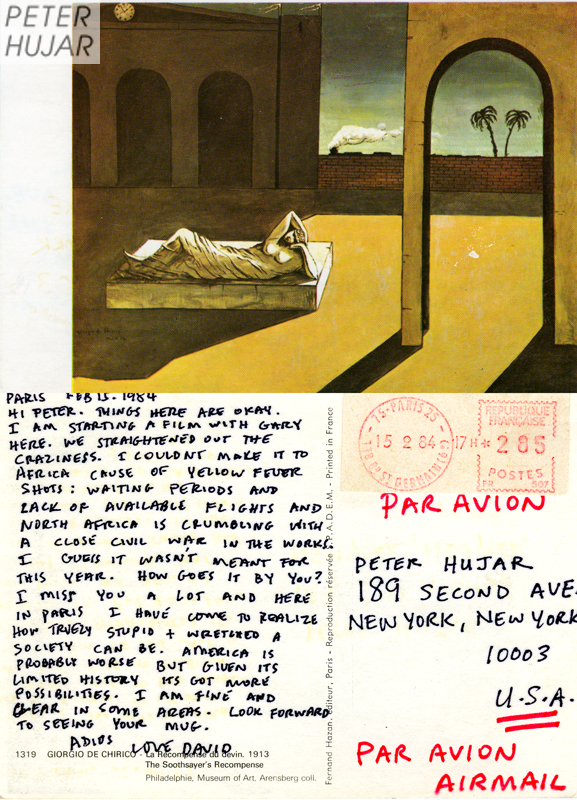 PETER
HUJAR
PARIS FEB 15. 1984
HI PETER. THINGS HERE ARE OKAY.
I AM STARTING A FILM WITH GARY
HERE. WE STRAIGHTENED OUT THE
CRAZINESS. I COULDNT MAKE IT TO
AFRICA CAUSE OF YELLOW FEVER
SHOTS: WAITING PERIODS AND
LACK OF AVAILABLE FLIGHTS AND
NORTH AFRICA IS CRUMBLING WITH
A CLOSE CIVIL WAR IN THE WORKS.
I GUESS IT WASN'T MEANT FOR
THIS YEAR. HOW GOES IT BY YOU?
I MISS YOU A LOT AND HERE
IN PARIS I HAVE COME TO REALIZE
HOW TRUELY STUPID + WRETCHED A
SOCIETY CAN BE. AMERICA IS
PROBABLY WORSE BUT GIVEN ITS
LIMITED HISTORY ITS GOT MORE
POSSIBILITIES. I AM FINE AND
CLEAR IN SOME AREAS. LOOK FORWARD
TO SEEING YOUR MUG.
ADIOS LOVE DAVID
1319 GIORGIO DE CHIRICO - La Récompense du devin. 1913
The Soothsayer's Recompense
Philadelphie, Museum of Art, Arensberg coll.
Fernand Hazan, éditeur, Paris - Reproduction réservée S.P.A.D.E.M. - Printed in France
75-PARIS 25
15 2 84 17H
REPUBLIQUE
FRANÇAISE
285
POSTES
907
PAR AVION
PETER HUJAR
189 SECOND AVE.
NEW YORK, NEW YORK
10003
U.S.A.
PAR AVION
AIRMAIL